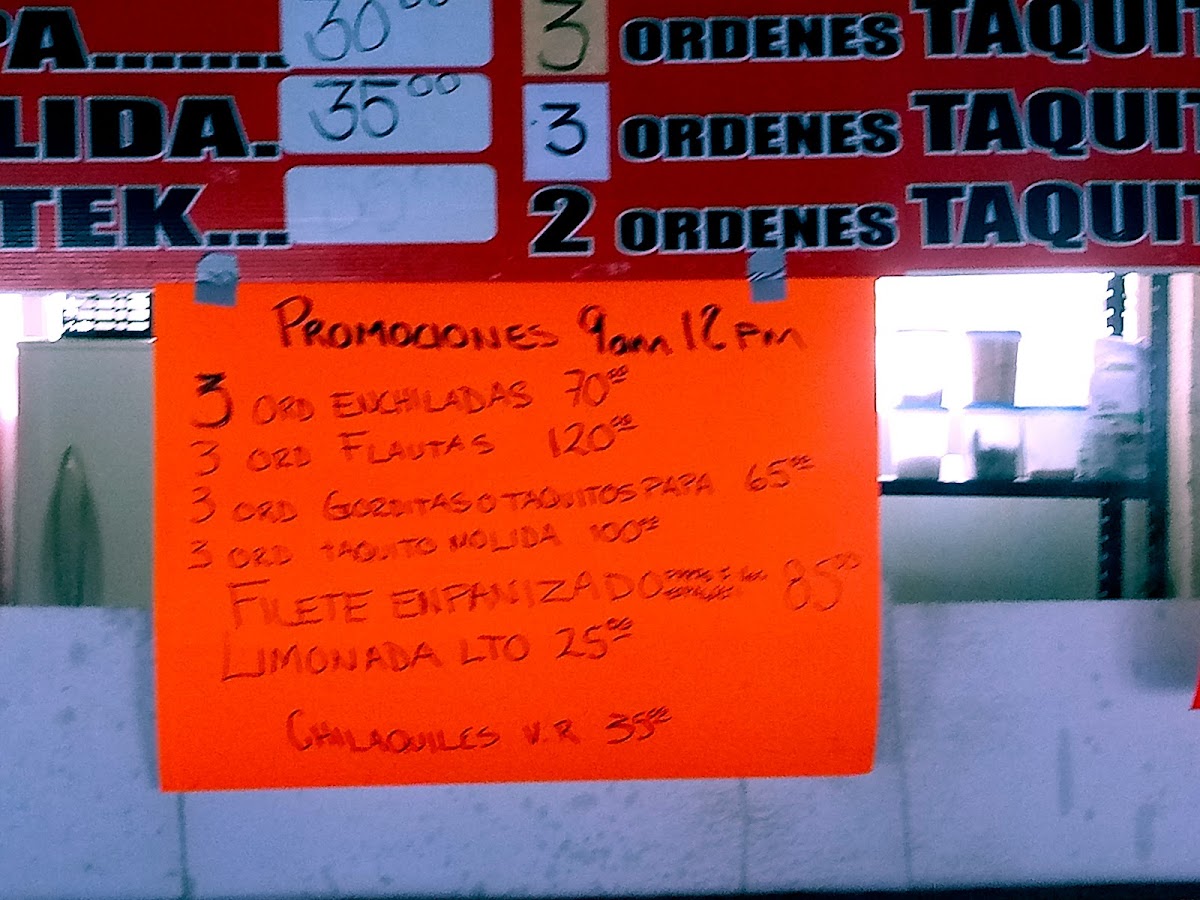 PA....... 30⁰⁰
LIDA. 35⁰⁰
TEK...
3 ORDENES TAQUIT
3 ORDENES TAQUIT
2 ORDENES TAQUIT
PROMOCIONES 9am 12 PM
3 ORD ENCHILADAS 70⁰⁰
3 ORD FLAUTAS 120⁰⁰
3 ORD GORDITAS O TAQUITOS PAPA 65⁰⁰
3 ORD TAQUITO MOLIDA 100⁰⁰
FILETE EMPANIZADO 85⁰⁰
LIMONADA LTO 25⁰⁰
CHILAQUILES V.R 35⁰⁰